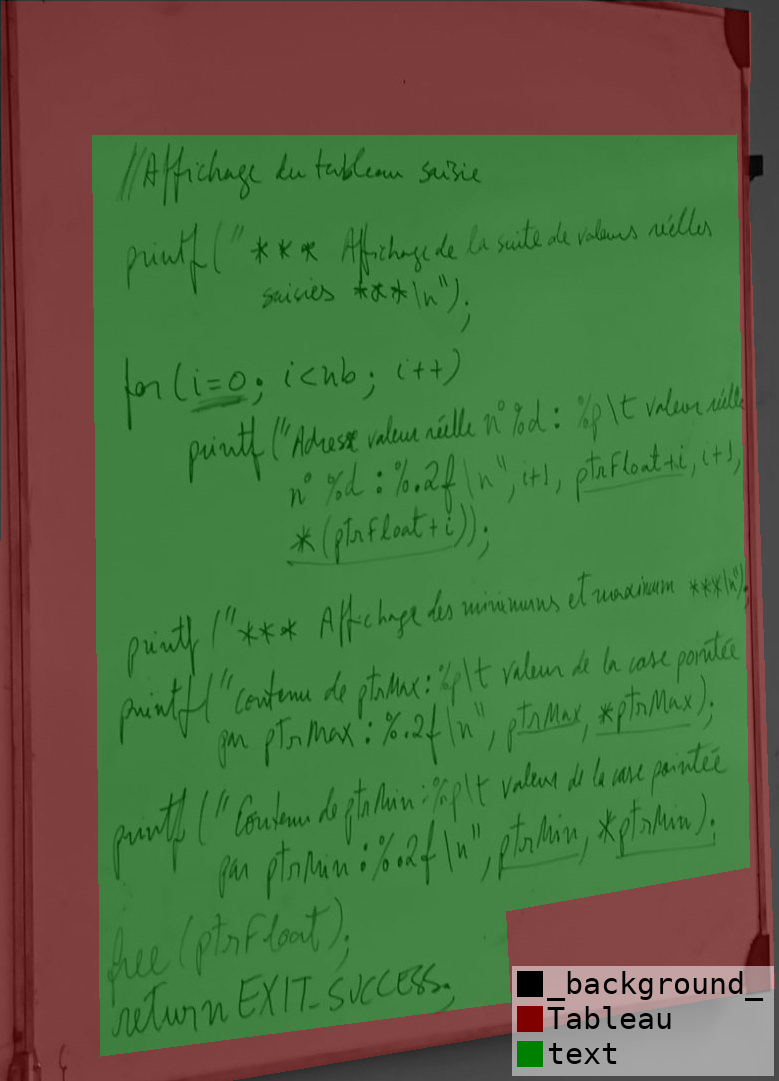 //Affichage du tableau saisie
printf("*** Affichage de la suite de valeurs réelles
saisies ***\n");
for(i=0; i<nb; i++)
printf("Adresse valeur réelle n°%d : %p\t valeur réelle
n° %d : %.2f\n", i+1, ptrFloat+i, i+1,
*(ptrFloat+i));
printf("*** Affichage des minimums et maximum ***\n");
printf("Contenu de ptrMax : %p\t valeur de la case pointée
par ptrMax : %.2f\n", ptrMax, *ptrMax);
printf("Contenu de ptrMin : %p\t valeur de la case pointée
par ptrMin : %.2f\n", ptrMin, *ptrMin);
free(ptrFloat);
return EXIT_SUCCESS;
_background_
Tableau
text